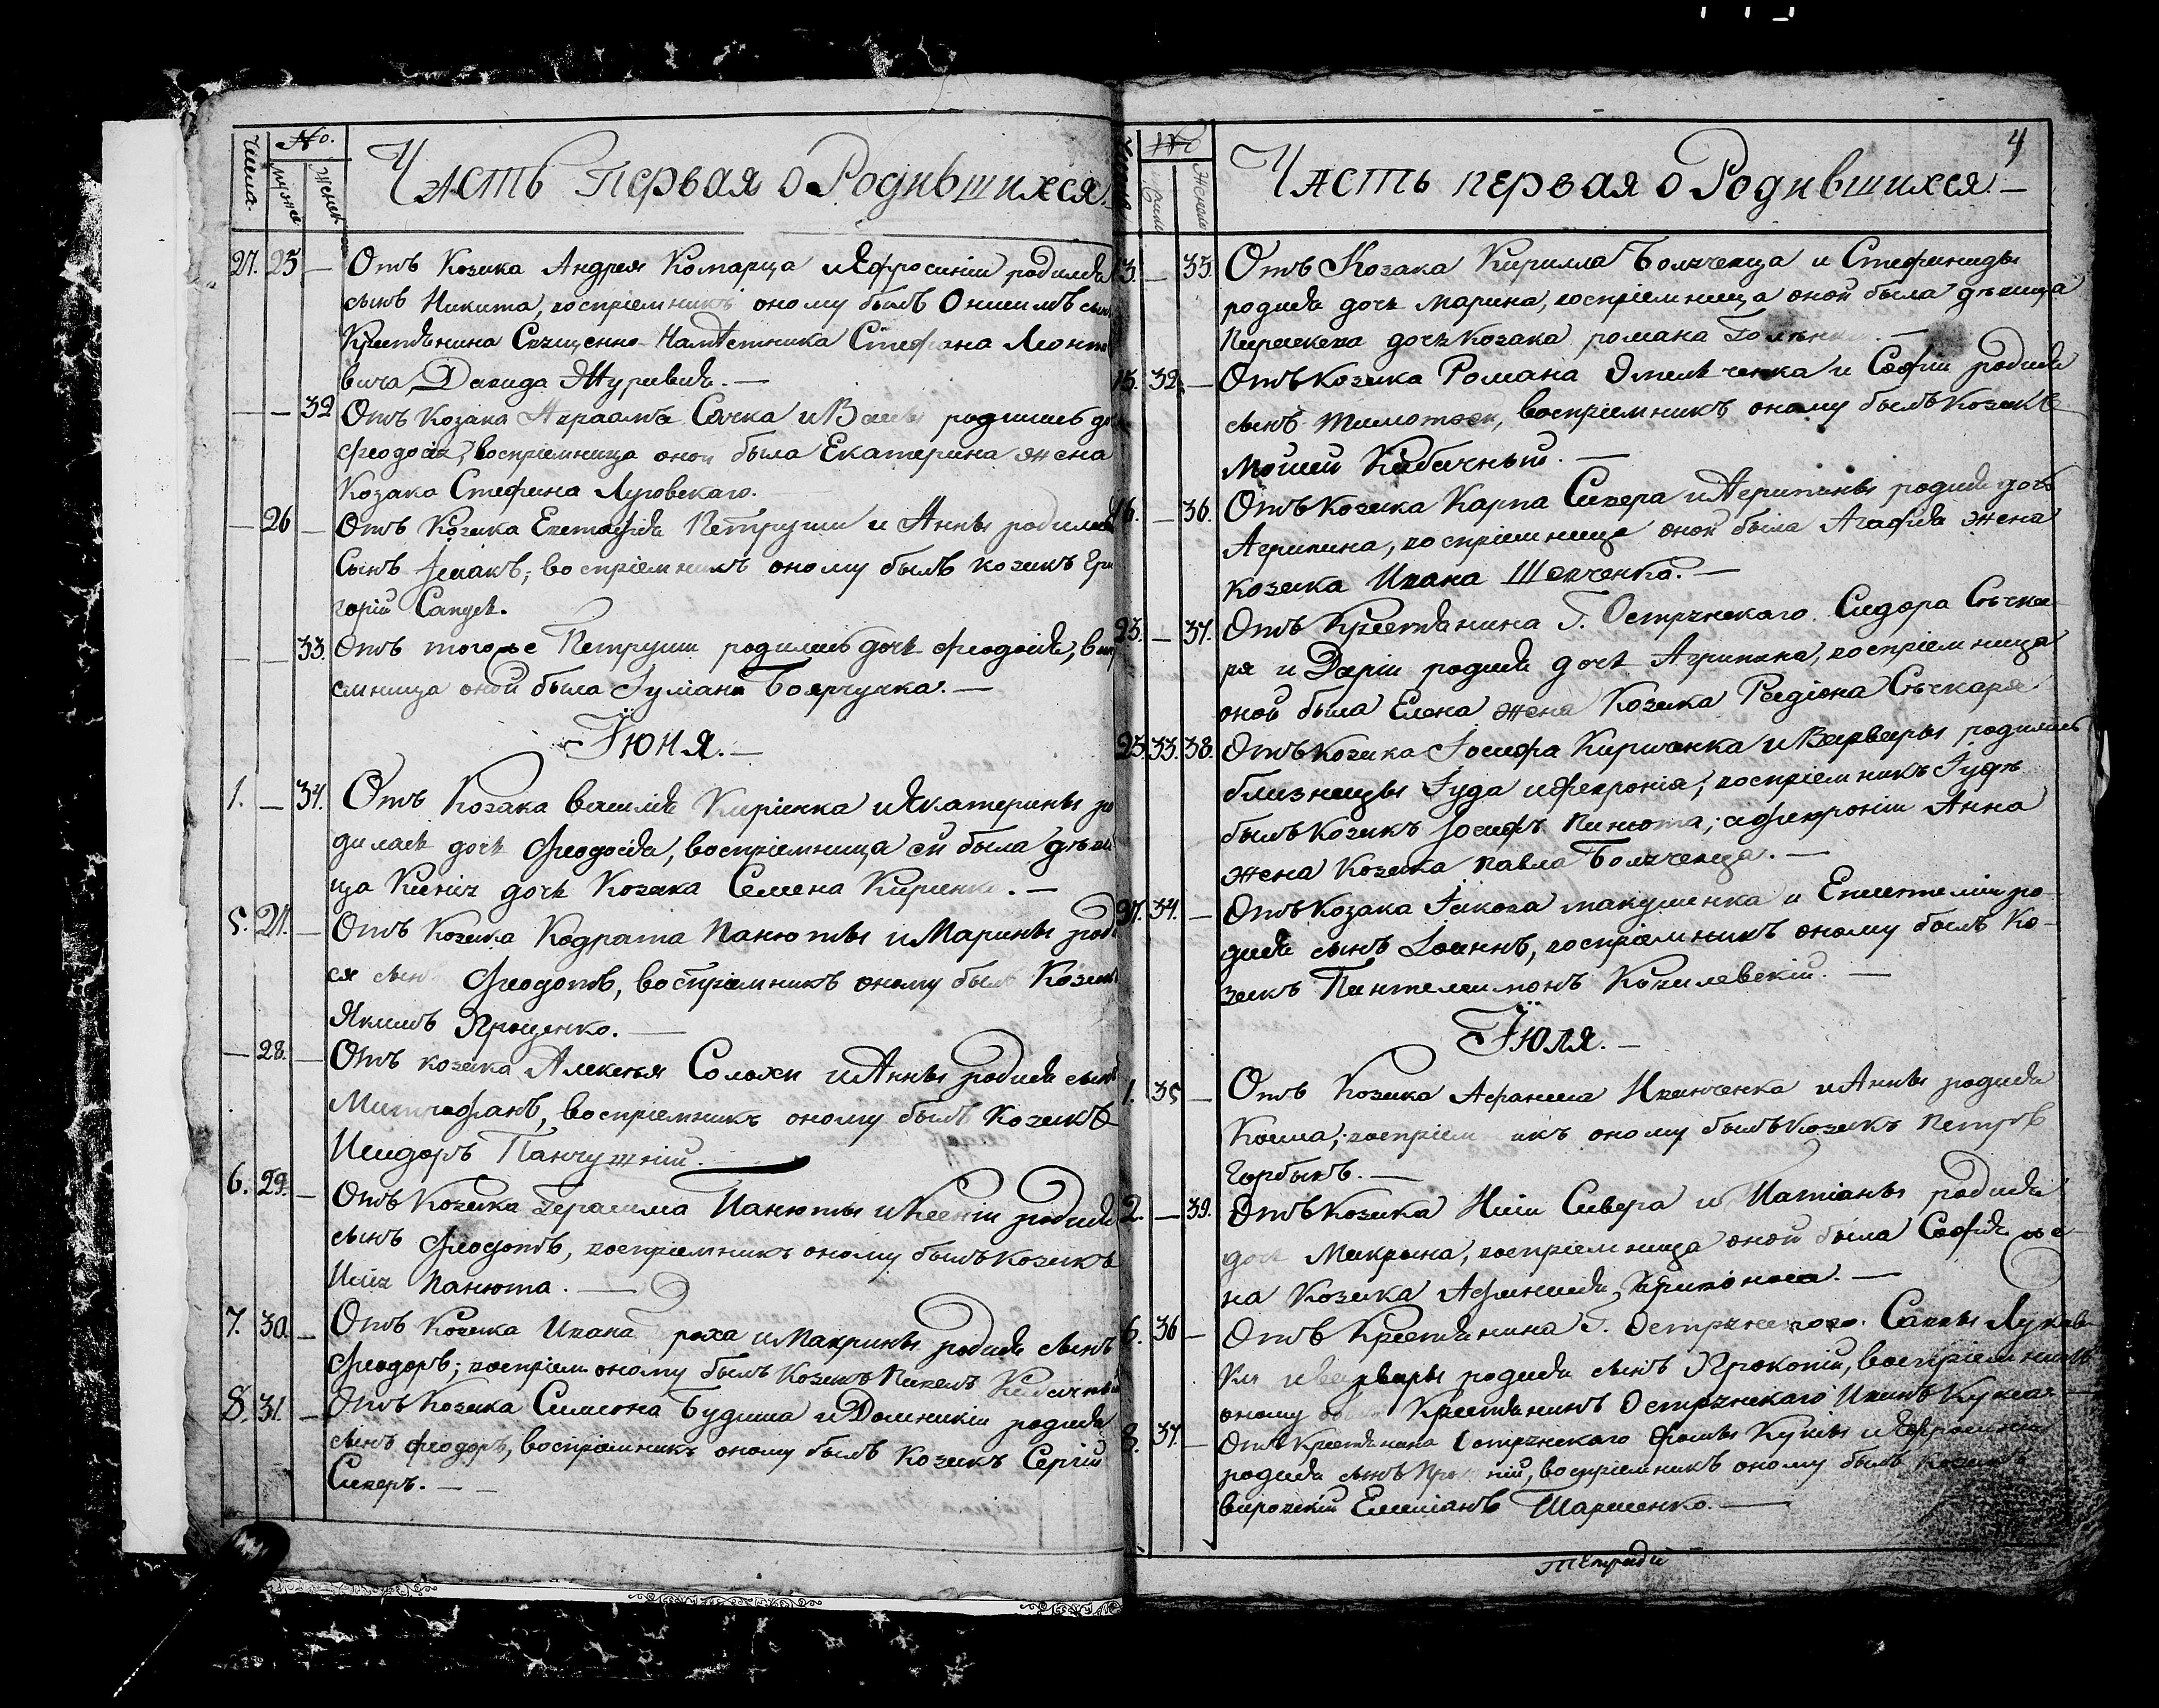 Числа. № мужеск женск
Часть Первая о Родившихся.
27. 25 — Отъ Козака Андрея Комарца и Ефросиніи родился
сынъ Никита, воспріемникъ оному былъ Онисимъ сынъ
Крестьянина Священно-Намѣстника Стефана Леонто
вича, Давида Журавля. —
— — 32 Отъ Козака Авраама Сачка и родилась до
Феодосія, воспріемница оной была Екатерина жена
Козака Стефана Луговскаго.
— 26 — Отъ Козака Евстафія Петруши и Анны родился
Сынъ Ісаакъ; воспріемникъ оному былъ козакъ Гри
горій Сапунъ.
— — 33. Отъ того же Петруши родилась дочь Феодосія, воспрі
емница оной была Іуліана Боярчучка. —
Іюня. —
1. — 34. Отъ Козака Василія Киріенка и Екатерины ро
дилась дочь Феодосія, воспріемница ей была дѣви
ца Ксенія дочь Козака Семена Киріенка. —
5. 27. — Отъ Козака Кодрата Панюты и Марины роди
ся сынъ Феодотъ, воспріемникъ оному былъ Козакъ
Якимъ Проценко. —
— 28. — Отъ козака Алексѣя Солохи и Анны родился сынъ
Митрофанъ, воспріемникъ оному былъ Козакъ
Исидоръ Панчужній.
6. 29. — Отъ Козака Герасима Панюты и Ксеніи родился
сынъ Феодотъ, воспріемникъ оному былъ Козакъ
Илія Панюта. —
7. 30. — Отъ Козака Ивана роха и Макрины родился сынъ
Феодоръ; воспріем оному былъ Козакъ Павелъ Кабачный
8. 31. — Отъ Козака Симеона Будиша и Домникіи родился
сынъ Феодоръ, воспріемникъ оному былъ Козакъ Сергій
Сиверъ. —
4
№ Женск
Часть первая о Родившихся. —
13. — 35. Отъ Козака Кирилла Болячевца и Стефаниды
родися дочь Марина, воспріемница оной была дѣвица
Параскева дочь Козака романа —
15. 32. — Отъ Козака Романа Омельченка и Софіи родися
сынъ Тимотей, воспріемникъ оному былъ Козакъ
Мойсей Кабачный. —
16. — 36. Отъ Козака Карпа Сивера и Агрипины родися дочь
Агрипина, воспріемница оной была Агафія жена
козака Ивана Шевченка. —
23. — 37. Отъ Крестьянина Г. Остр Сидора Сѣчка
ря и Даріи родися дочь Агрипина, воспріемница
оной была Елена жена Козака Родіона Сѣчкаря
25. 33. 38. Отъ Козака Іосифа Кириченка и Варвары родились
близнецы Іуда и Феврония; воспріемникъ Іудѣ
былъ Козакъ Іосифъ Панюта; а Февроніи Анна
жена Козака Павла Болячевца. —
27. 34. — Отъ Козака Іякова Макушенка и Епистиміи ро-
дися сынъ Іоаннъ, воспріемникъ оному былъ Ко-
закъ Пантелеимонъ Ковалевскій. —
Іюля. —
1. 35 — Отъ Козака Афанасія Иванченка и Анны родися
Косма; воспріемникъ оному былъ Козакъ Петръ
Горбыкъ. —
2. — 39. Отъ Козака Иліи Сивера и Татіаны родися
дочь Макрына, воспріемница оной была Софія же
на Козака Афанасія Кривоноса. —
6. 36 — Отъ Крестьянина Г. Остр Саввы
и Варвары родися сынъ Прокопій, воспріемникъ
оному былъ Крестьянинъ Остр Иванъ
8. 37. — Отъ Крестьянина Остр Фомы и Евфросиніи
родися сынъ Про ній, воспріемникъ оному былъ Козакъ
Емиліанъ —
Тетради